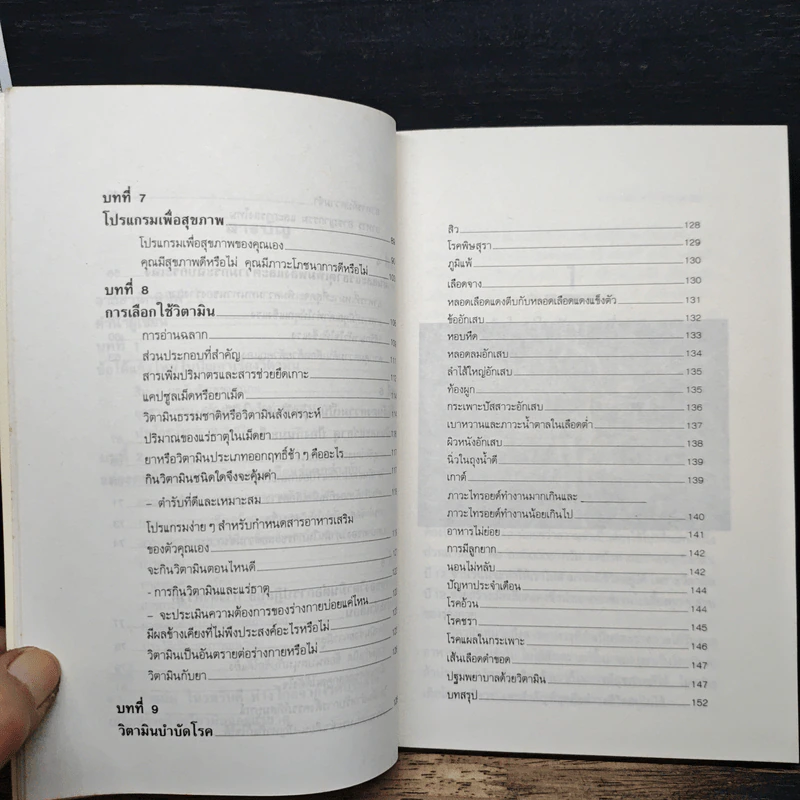 บทที่ 7
โปรแกรมเพื่อสุขภาพ
โปรแกรมเพื่อสุขภาพของคุณเอง
คุณมีสุขภาพดีหรือไม่ คุณมีภาวะโภชนาการดีหรือไม่
บทที่ 8
การเลือกใช้วิตามิน
การอ่านฉลาก
ส่วนประกอบที่สำคัญ
สารเพิ่มปริมาตรและสารช่วยยึดเกาะ
แคปซูลเม็ดหรือยาเม็ด
วิตามินธรรมชาติหรือวิตามินสังเคราะห์
ปริมาณของแร่ธาตุในเม็ดยา
ยาหรือวิตามินประเภทออกฤทธิ์ช้า ๆ คืออะไร
กินวิตามินชนิดใดจึงจะคุ้มค่า
– ตำรับที่ดีและเหมาะสม
โปรแกรมง่าย ๆ สำหรับกำหนดสารอาหารเสริม
ของตัวคุณเอง
จะกินวิตามินตอนไหนดี
- การกินวิตามินและแร่ธาตุ
– จะประเมินความต้องการของร่างกายบ่อยแค่ไหน
มีผลข้างเคียงที่ไม่พึงประสงค์อะไรหรือไม่
วิตามินเป็นอันตรายต่อร่างกายหรือไม่
วิตามินกับยา
บทที่ 9
วิตามินบำบัดโรค
สิว 128
โรคพิษสุรา 129
ภูมิแพ้ 130
เลือดจาง 130
หลอดเลือดแดงตีบกับหลอดเลือดแดงแข็งตัว 131
ข้ออักเสบ 132
หอบหืด 133
หลอดลมอักเสบ 134
ลำไส้ใหญ่อักเสบ 135
ท้องผูก 135
กระเพาะปัสสาวะอักเสบ 136
เบาหวานและภาวะน้ำตาลในเลือดต่ำ 137
ผิวหนังอักเสบ 138
นิ่วในถุงน้ำดี 139
เกาต์ 139
ภาวะไทรอยด์ทำงานมากเกินและ
ภาวะไทรอยด์ทำงานน้อยเกินไป 140
อาหารไม่ย่อย 141
การมีลูกยาก 142
นอนไม่หลับ 142
ปัญหาประจำเดือน 144
โรคอ้วน 144
โรคชรา 145
โรคแผลในกระเพาะ 146
เส้นเลือดดำขอด 147
ปฐมพยาบาลด้วยวิตามิน 147
บทสรุป 152